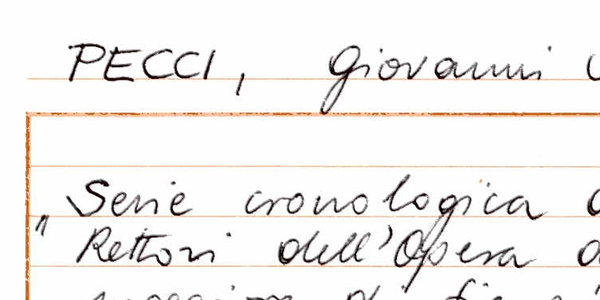 PECCI, Giovanni
Serie cronologica
" Rettori dell'Opera
di